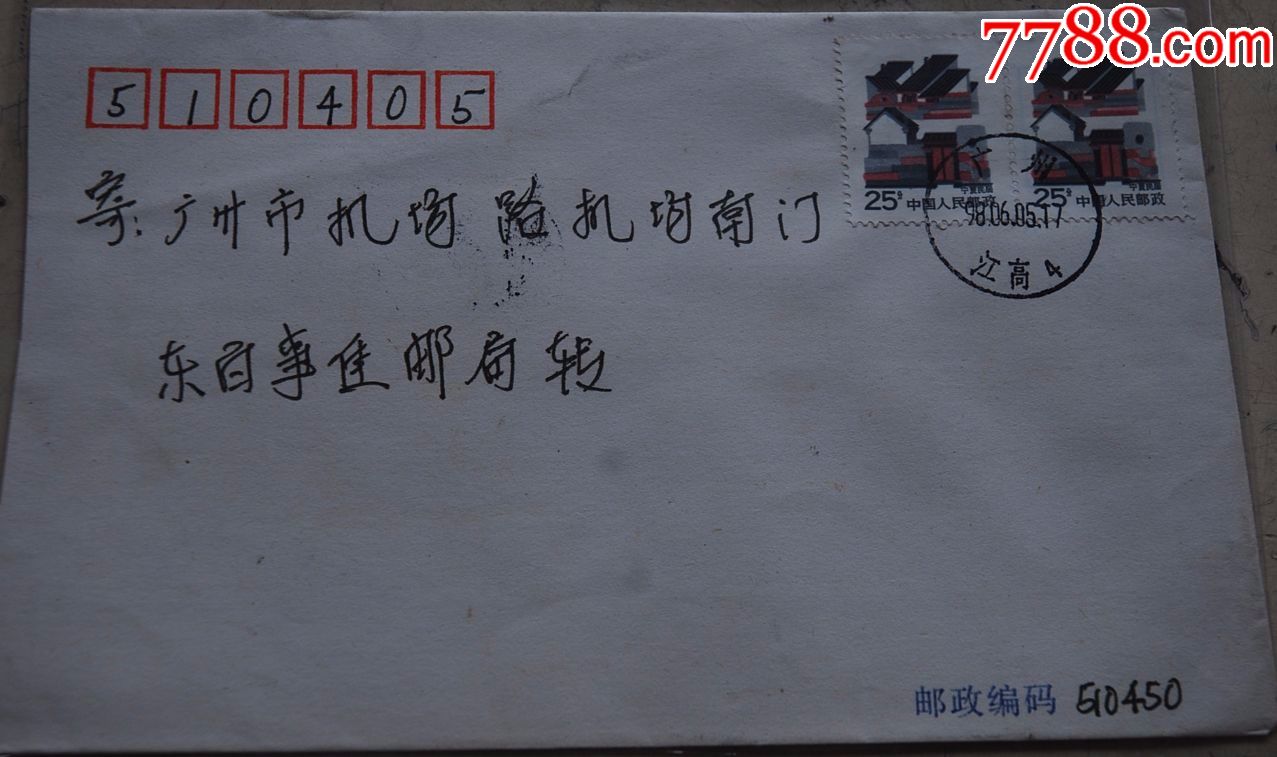 7788.com
510405
寄:广州市机场路机场南门
东百事佳邮局转
25分 中国人民邮政
宁夏民居
25分 中国人民邮政
宁夏民居
广州
98.06.05.17
江高4
邮政编码 510450